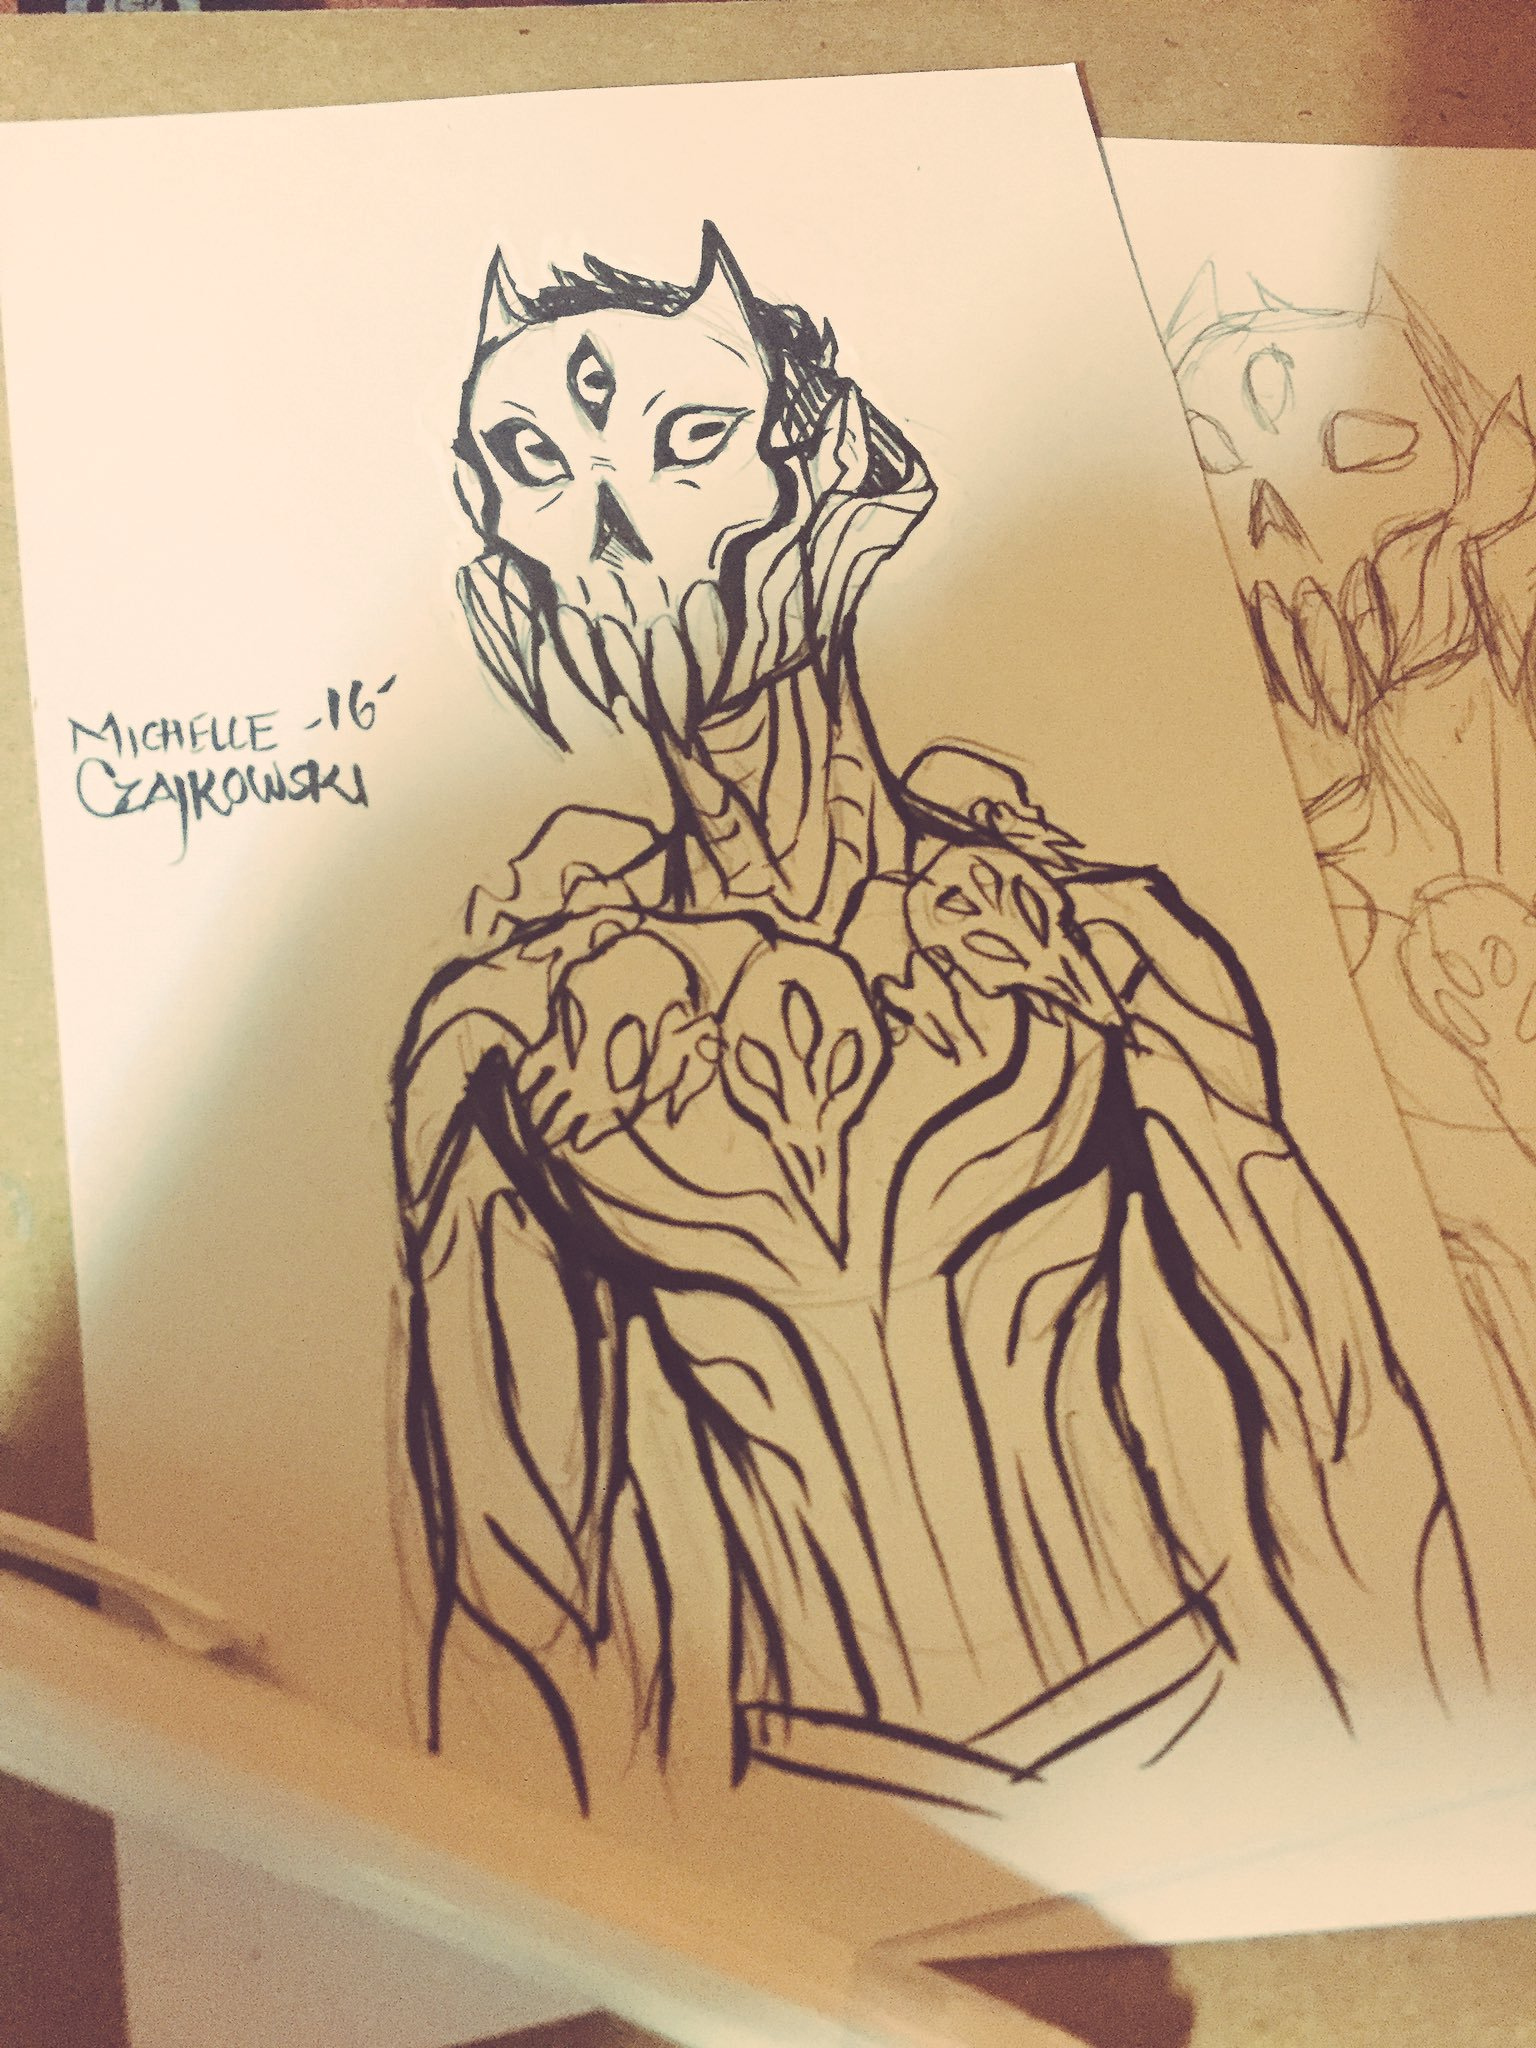 MICHELLE -16-
CZAJKOWSKI